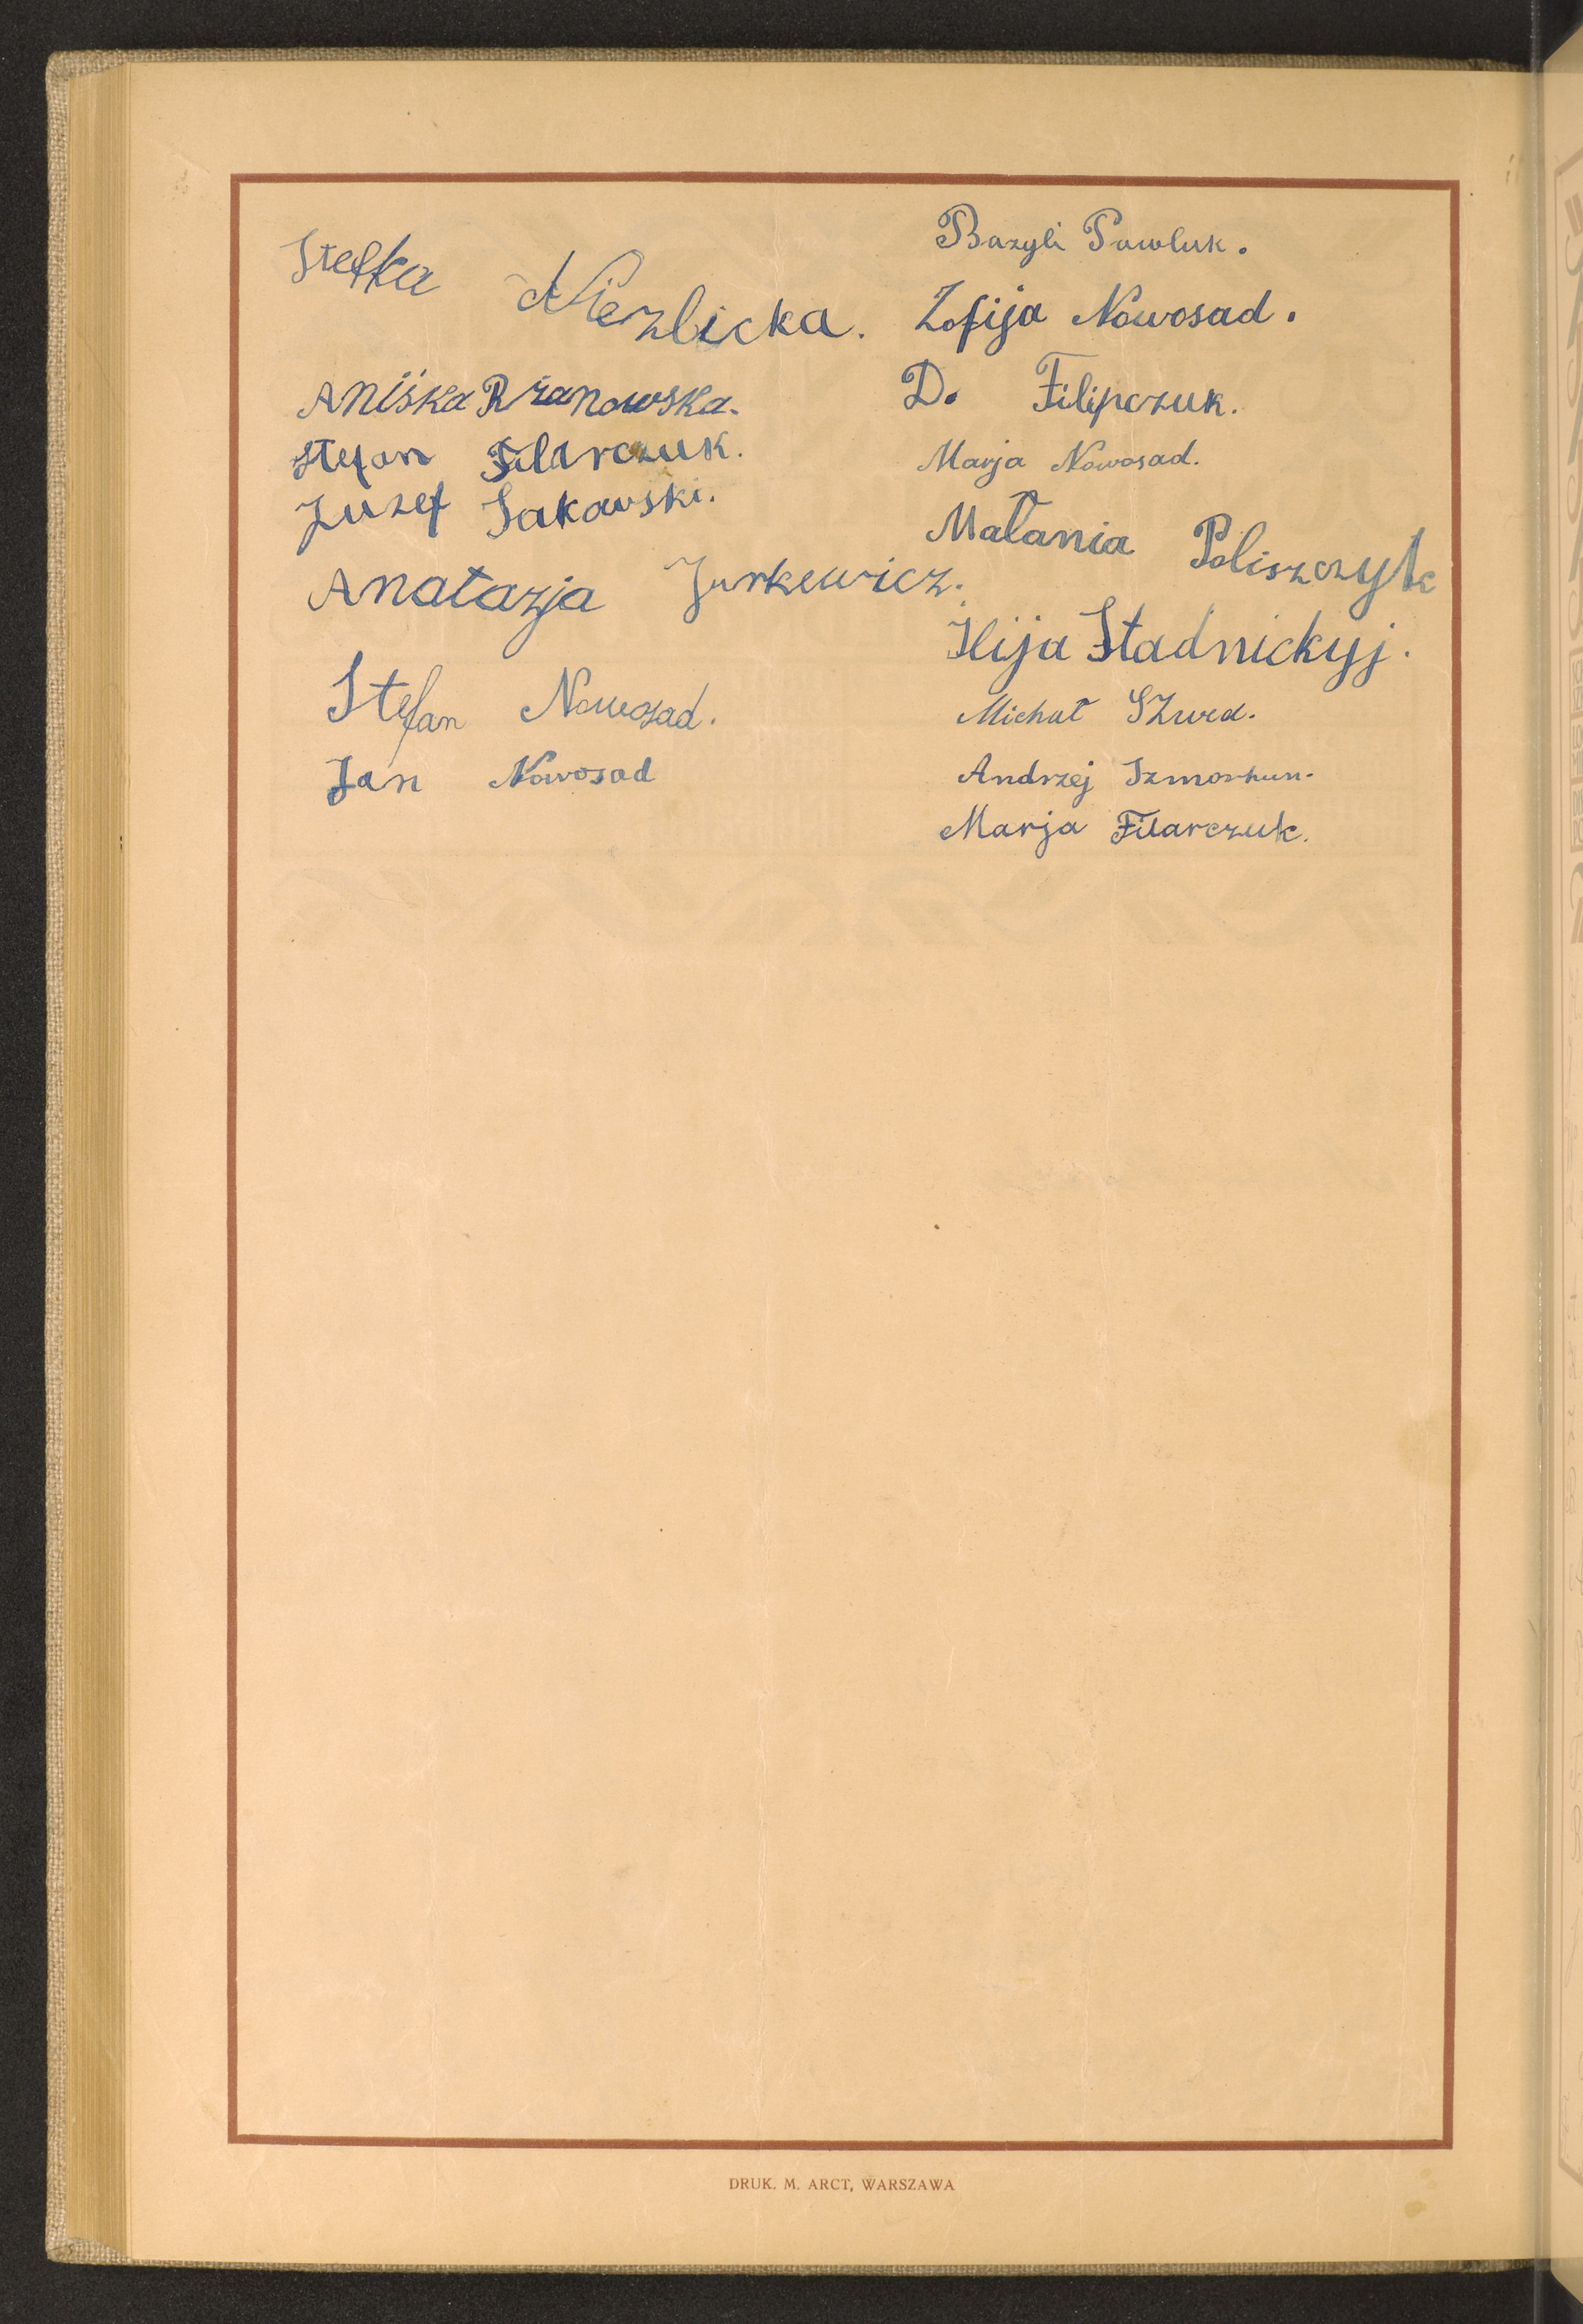 Stefka Niezlicka.
Aniśka Rżanowska.
Stefan Filarczuk.
Juzef Sakawski.
Anatazja Jurkewicz.
Stefan Nowosad.
Jan Nowosad
Bazyli Pawluk.
Zofija Nowosad.
D. Filipczuk.
Marja Nowosad.
Małania Poliszczyk
Ilija Stadnickyj.
Michał
Andrzej Szmorhun.
Marja Filarczuk.
DRUK. M. ARCT, WARSZAWA